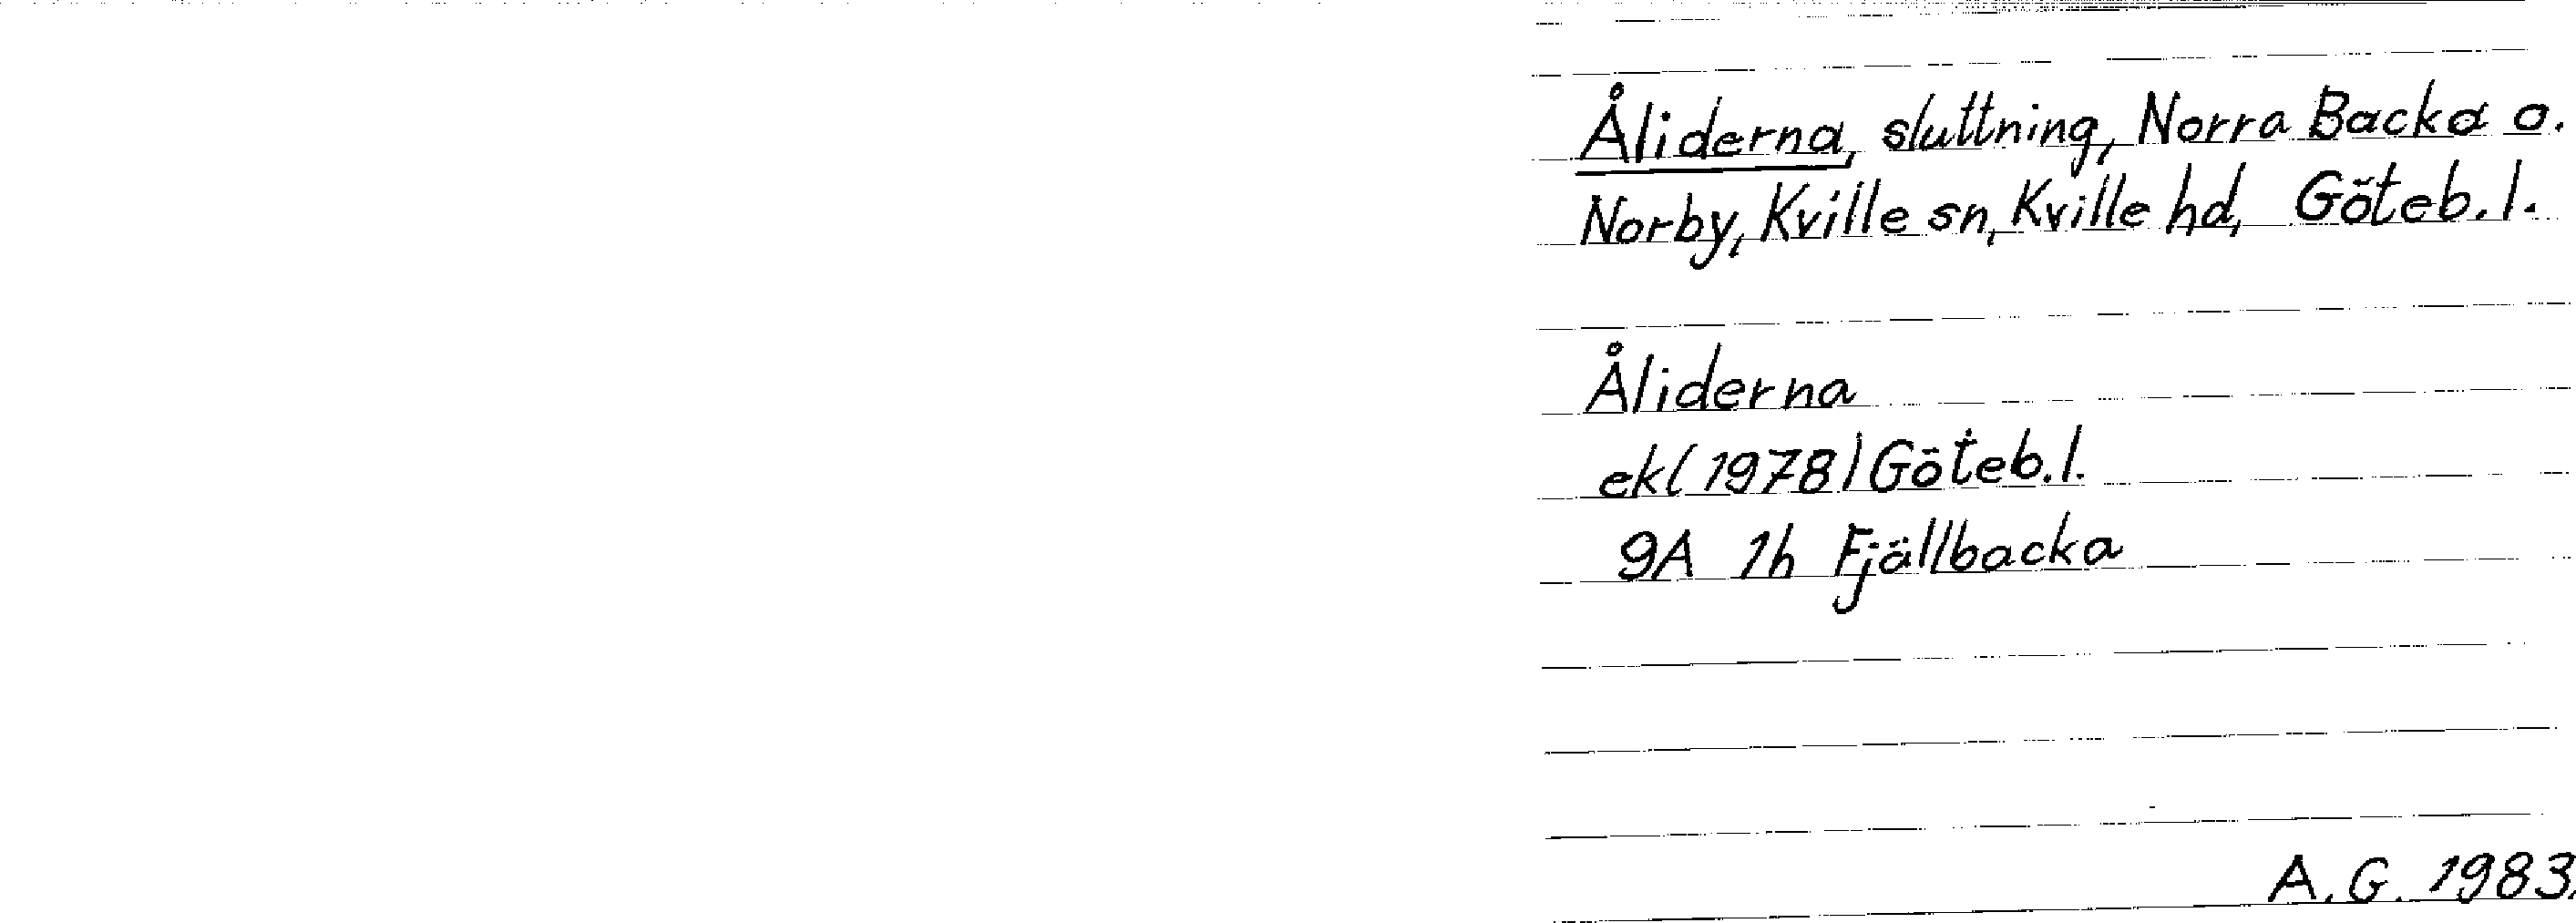 Åliderna, sluttning, Norra Backa o.
Norby, Kville sn, Kville hd, Göteb. l.
Åliderna
ekl (1978) Göteb. l.
9A 1h Fjällbacka
A. G. 1983.